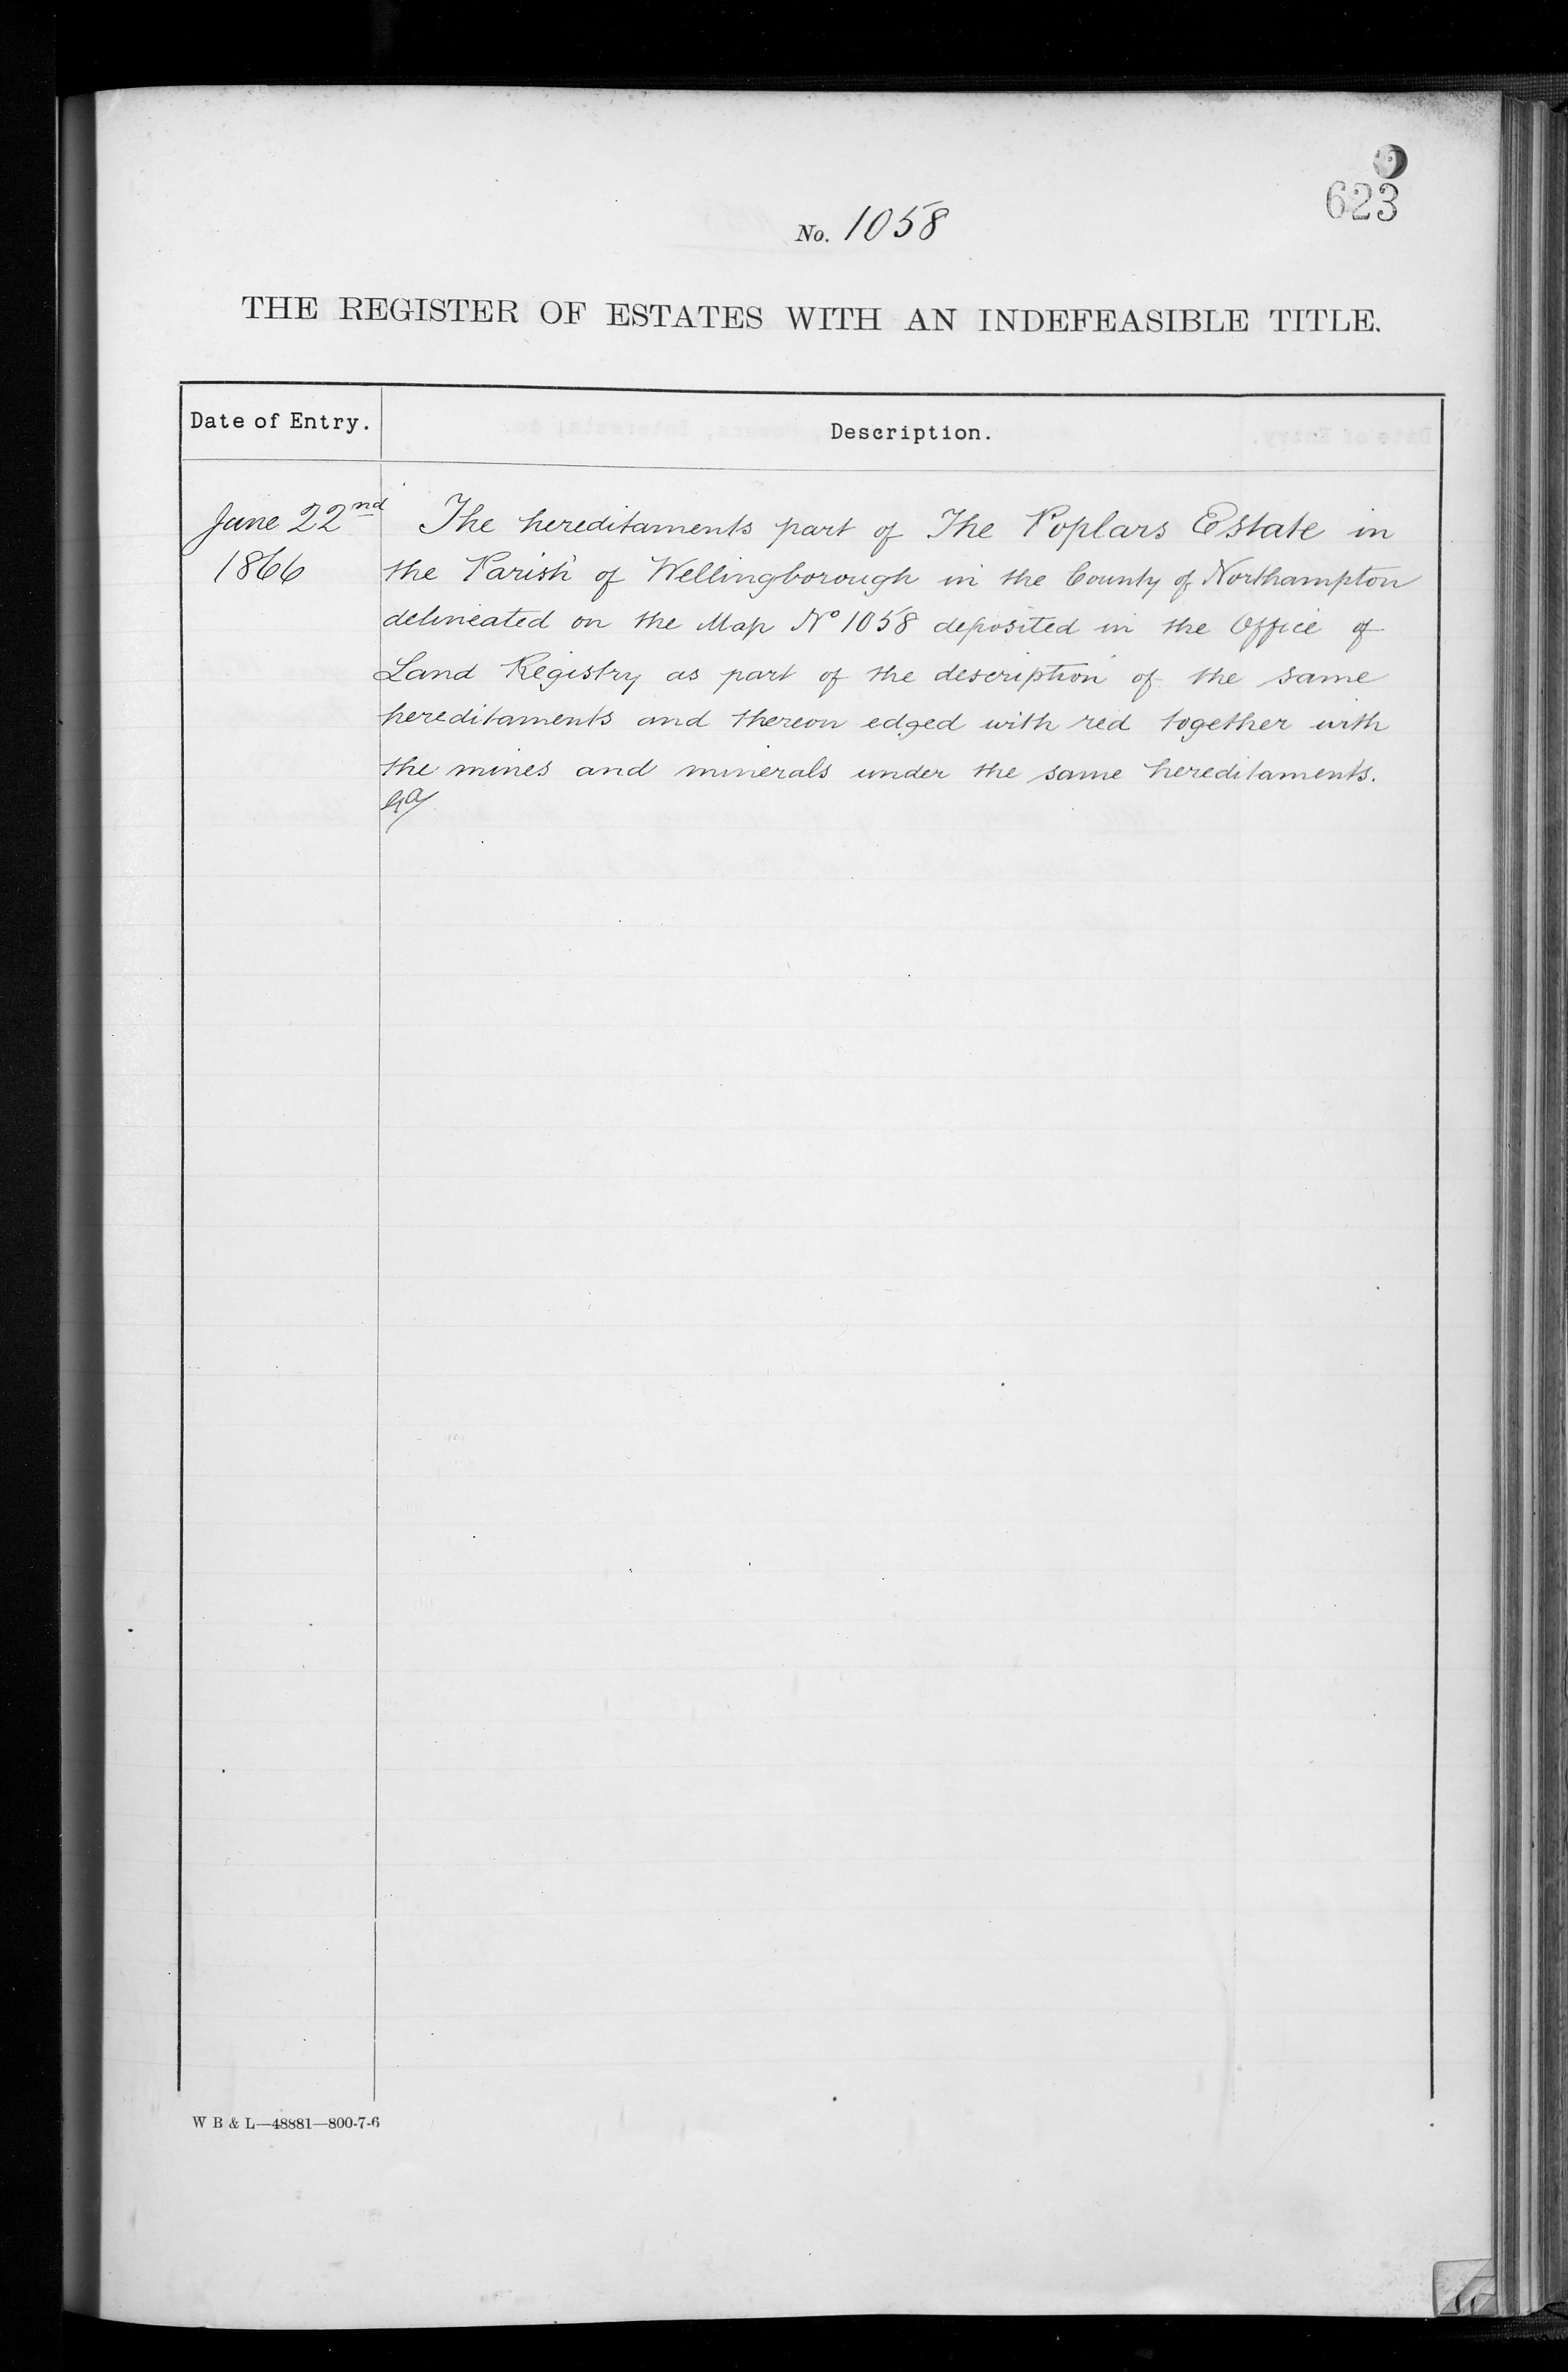 623
No. 1058
THE REGISTER OF ESTATES WITH AN INDEFEASIBLE TITLE.
Date of Entry.
Description.
June 22nd
1866
The hereditaments part of The Poplars Estate in
the Parish of Wellingborough in the County of Northampton
delineated on the Map No 1058 deposited in the Office of
Land Registry as part of the description of the same
hereditaments and thereon edged with red together with
the mines and minerals under the same hereditaments.
W B & L—48881—800-7-6